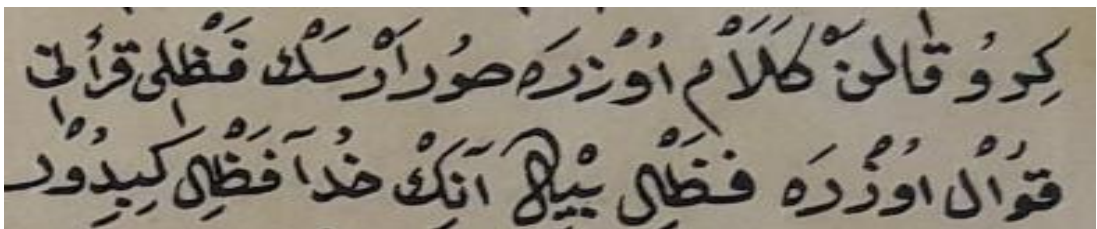 كِرُو قَالَنْ كَلَامْ اُوْزَرَه صُورَارْسَكْ فَضْلِى قُرْأنِڭ
قَوَّالْ اُوْزَرَه فَضْلِى بِيْلْ آنِكْ خُدَا فَضْلِى كِبِدُوْر